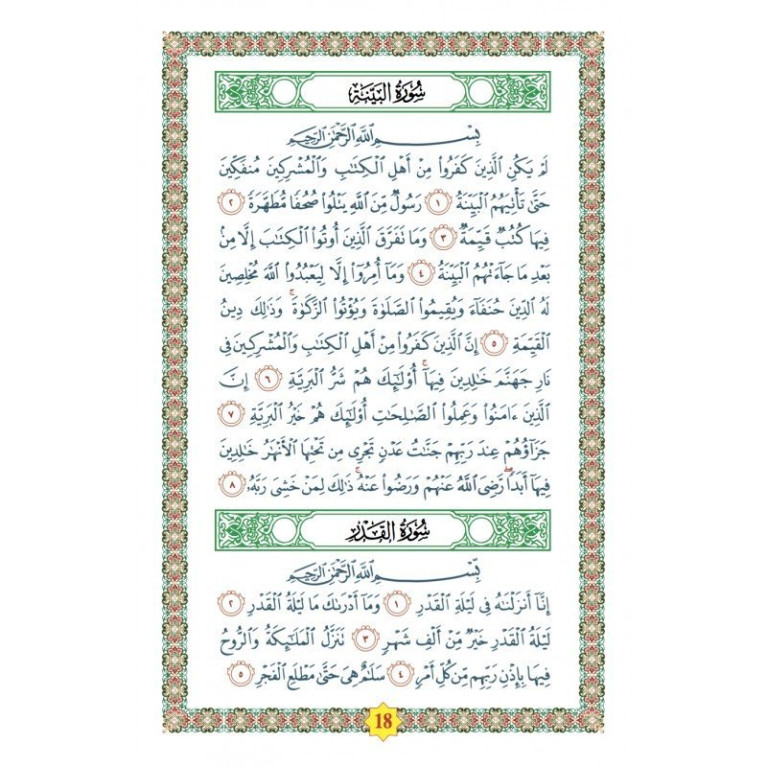 سُورَةُ البَيِّنَةِ
بِسْمِ ٱللَّهِ ٱلرَّحْمَٰنِ ٱلرَّحِيمِ
لَمْ يَكُنِ ٱلَّذِينَ كَفَرُوا۟ مِنْ أَهْلِ ٱلْكِتَٰبِ وَٱلْمُشْرِكِينَ مُنفَكِّينَ
حَتَّىٰ تَأْتِيَهُمُ ٱلْبَيِّنَةُ ١ رَسُولٌ مِّنَ ٱللَّهِ يَتْلُوا۟ صُحُفًا مُّطَهَّرَةً ٢
فِيهَا كُتُبٌ قَيِّمَةٌ ٣ وَمَا تَفَرَّقَ ٱلَّذِينَ أُوتُوا۟ ٱلْكِتَٰبَ إِلَّا مِنۢ
بَعْدِ مَا جَآءَتْهُمُ ٱلْبَيِّنَةُ ٤ وَمَآ أُمِرُوٓا۟ إِلَّا لِيَعْبُدُوا۟ ٱللَّهَ مُخْلِصِينَ
لَهُ ٱلدِّينَ حُنَفَآءَ وَيُقِيمُوا۟ ٱلصَّلَوٰةَ وَيُؤْتُوا۟ ٱلزَّكَوٰةَ ۚ وَذَٰلِكَ دِينُ
ٱلْقَيِّمَةِ ٥ إِنَّ ٱلَّذِينَ كَفَرُوا۟ مِنْ أَهْلِ ٱلْكِتَٰبِ وَٱلْمُشْرِكِينَ فِى
نَارِ جَهَنَّمَ خَٰلِدِينَ فِيهَآ ۚ أُو۟لَٰٓئِكَ هُمْ شَرُّ ٱلْبَرِيَّةِ ٦ إِنَّ
ٱلَّذِينَ ءَامَنُوا۟ وَعَمِلُوا۟ ٱلصَّٰلِحَٰتِ أُو۟لَٰٓئِكَ هُمْ خَيْرُ ٱلْبَرِيَّةِ ٧
جَزَآؤُهُمْ عِندَ رَبِّهِمْ جَنَّٰتُ عَدْنٍ تَجْرِى مِن تَحْتِهَا ٱلْأَنْهَٰرُ خَٰلِدِينَ
فِيهَآ أَبَدًا ۖ رَّضِىَ ٱللَّهُ عَنْهُمْ وَرَضُوا۟ عَنْهُ ۚ ذَٰلِكَ لِمَنْ خَشِىَ رَبَّهُۥ ٨
سُورَةُ القَدْرِ
بِسْمِ ٱللَّهِ ٱلرَّحْمَٰنِ ٱلرَّحِيمِ
إِنَّآ أَنزَلْنَٰهُ فِى لَيْلَةِ ٱلْقَدْرِ ١ وَمَآ أَدْرَىٰكَ مَا لَيْلَةُ ٱلْقَدْرِ ٢
لَيْلَةُ ٱلْقَدْرِ خَيْرٌ مِّنْ أَلْفِ شَهْرٍ ٣ تَنَزَّلُ ٱلْمَلَٰٓئِكَةُ وَٱلرُّوحُ
فِيهَا بِإِذْنِ رَبِّهِم مِّن كُلِّ أَمْرٍ ٤ سَلَٰمٌ هِىَ حَتَّىٰ مَطْلَعِ ٱلْفَجْرِ ٥
18